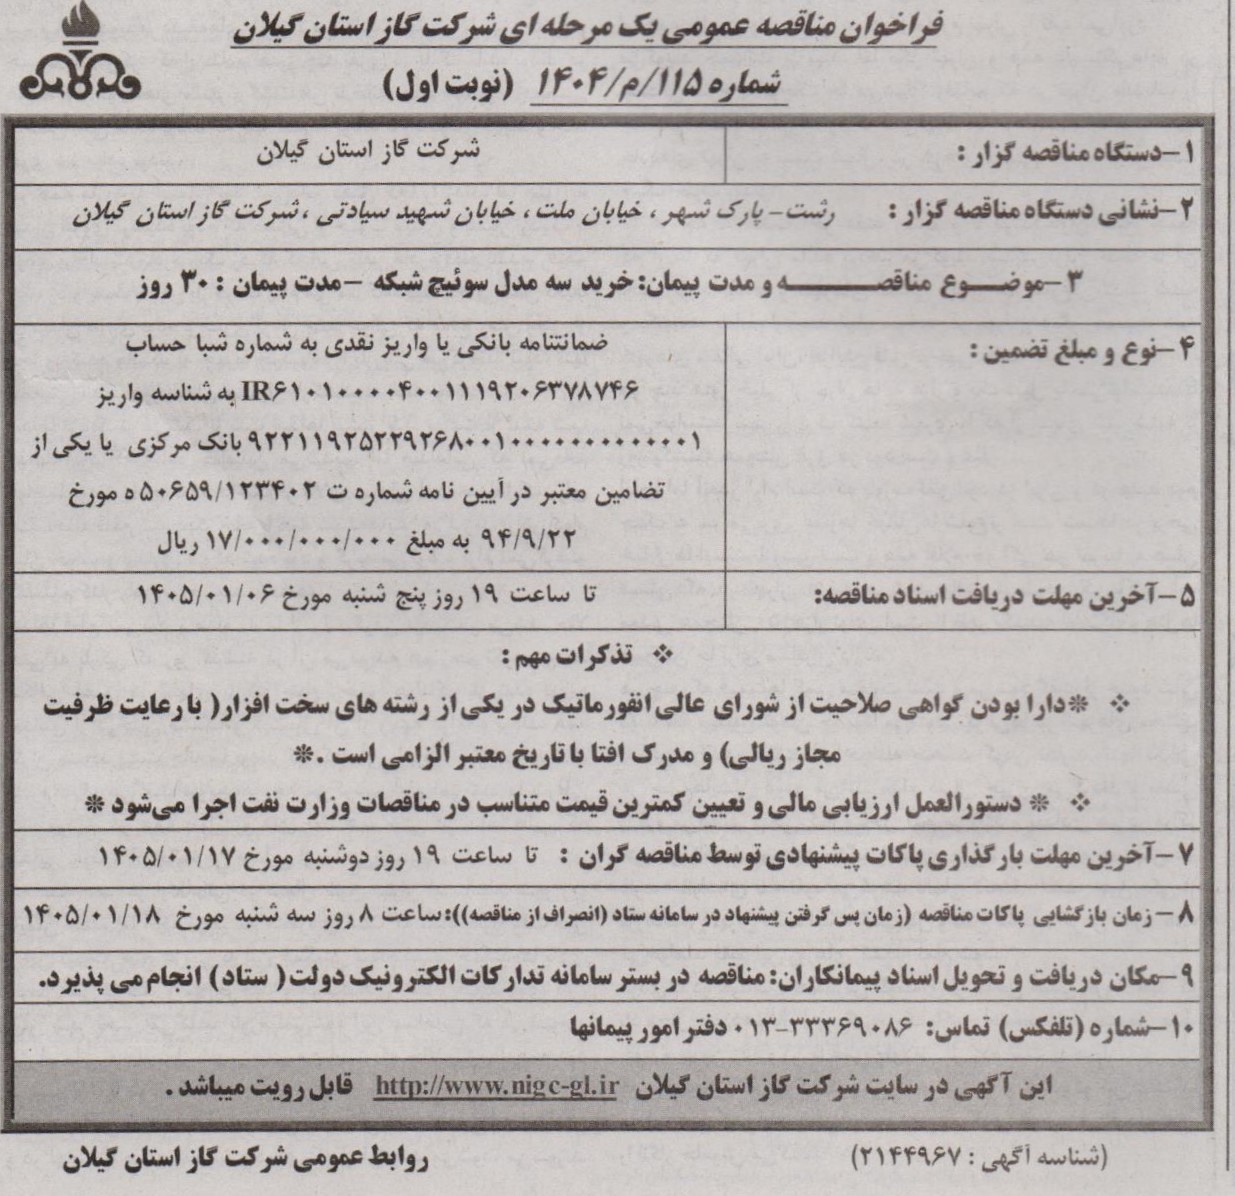 فراخوان مناقصه عمومی یک مرحله ای شرکت گاز استان گیلان
شماره ۱۱۵/م/۱۴۰۴ (نوبت اول)
۱-دستگاه مناقصه گزار : شرکت گاز استان گیلان
۲-نشانی دستگاه مناقصه گزار : رشت- پارک شهر ، خیابان ملت ، خیابان شهید سیادتی ، شرکت گاز استان گیلان
۳-موضوع مناقصه و مدت پیمان: خرید سه مدل سوئیچ شبکه -مدت پیمان : ۳۰ روز
۴-نوع و مبلغ تضمین : ضمانتنامه بانکی یا واریز نقدی به شماره شبا حساب
IR۶۱۰۱۰۰۰۰۴۰۰۱۱۱۹۲۰۶۳۷۸۷۴۶ به شناسه واریز
۹۲۲۱۱۹۲۵۲۲۹۲۶۸۰۰۱۰۰۰۰۰۰۰۰۰۰۰۰۱ بانک مرکزی یا یکی از
تضامین معتبر در آیین نامه شماره ت ۵۰۶۵۹/۱۲۳۴۰۲ ه مورخ
۹۴/۹/۲۲ به مبلغ ۱۷/۰۰۰/۰۰۰/۰۰۰ ریال
۵-آخرین مهلت دریافت اسناد مناقصه: تا ساعت ۱۹ روز پنج شنبه مورخ ۱۴۰۵/۰۱/۰۶
❖ تذکرات مهم :
❖ *دارا بودن گواهی صلاحیت از شورای عالی انفورماتیک در یکی از رشته های سخت افزار( با رعایت ظرفیت
مجاز ریالی) و مدرک افتا با تاریخ معتبر الزامی است .*
❖ * دستورالعمل ارزیابی مالی و تعیین کمترین قیمت متناسب در مناقصات وزارت نفت اجرا می‌شود *
۷-آخرین مهلت بارگذاری پاکات پیشنهادی توسط مناقصه گران : تا ساعت ۱۹ روز دوشنبه مورخ ۱۴۰۵/۰۱/۱۷
۸- زمان بازگشایی پاکات مناقصه (زمان پس گرفتن پیشنهاد در سامانه ستاد (انصراف از مناقصه)): ساعت ۸ روز سه شنبه مورخ ۱۴۰۵/۰۱/۱۸
۹-مکان دریافت و تحویل اسناد پیمانکاران: مناقصه در بستر سامانه تدارکات الکترونیک دولت( ستاد) انجام می پذیرد.
۱۰-شماره (تلفکس) تماس: ۰۱۳-۳۳۳۶۹۰۸۶ دفتر امور پیمانها
این آگهی در سایت شرکت گاز استان گیلان http://www.nigc-gl.ir قابل رویت میباشد .
(شناسه آگهی : ۲۱۴۴۹۶۷)
روابط عمومی شرکت گاز استان گیلان